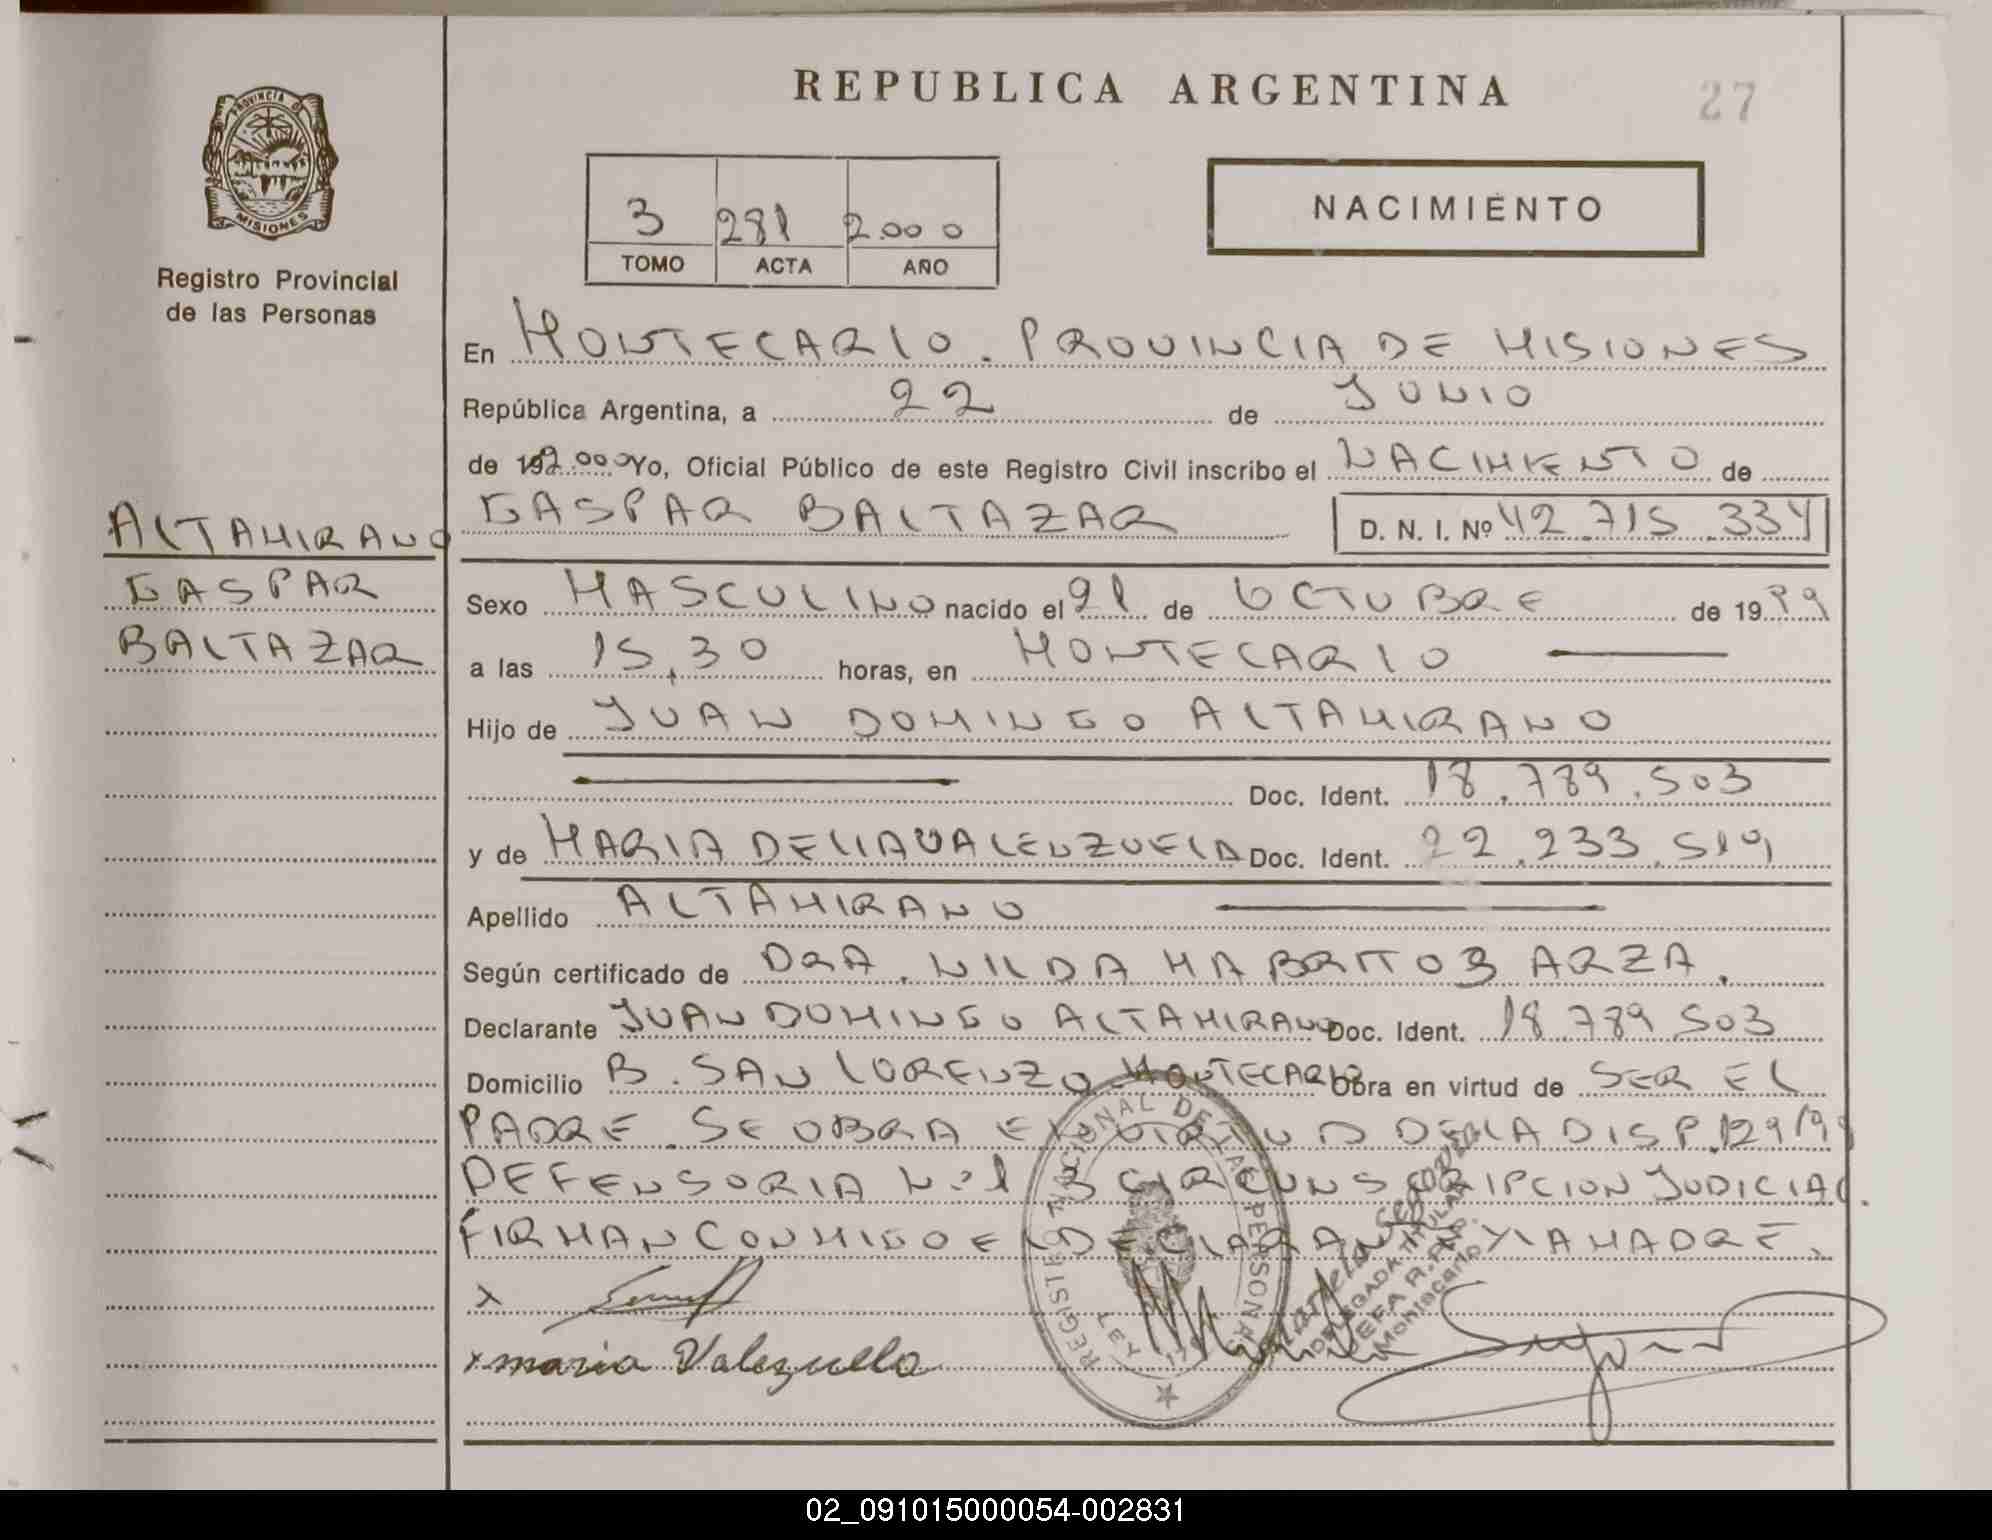 REPUBLICA ARGENTINA
27
PROVINCIA D
MISIONES
Registro Provincial
de las Personas
3 281 2.000
TOMO ACTA AÑO
NACIMIENTO
En MONTECARLO. PROVINCIA DE MISIONES
República Argentina, a 22 de JUNIO
de 192.000 Yo, Oficial Público de este Registro Civil inscribo el NACIMIENTO de
GASPAR BALTAZAR D. N. I. Nº 42.715.334
ALTAMIRANO
GASPAR
BALTAZAR
Sexo MASCULINO nacido el 21 de OCTUBRE de 1999
a las 15,30 horas, en MONTECARLO
Hijo de JUAN DOMINGO ALTAMIRANO
Doc. Ident. 18.789.503
y de MARIA DELIA VALENZUELA Doc. Ident. 22.233.519
Apellido ALTAMIRANO
Según certificado de DRA. NILDA MABRITO ARZA.
Declarante JUAN DOMINGO ALTAMIRANO Doc. Ident. 18.789.503
Domicilio B. SAN LORENZO MONTECARLO Obra en virtud de SER EL
PADRE. SE OBRA EN VIRTUD DE LA DISP. 129/99
DEFENSORIA Nº 1 3 CIRCUNSCRIPCION JUDICIAL.
FIRMAN CONMIGO EL DECLARANTE Y LA MADRE.
x
x maria Valezuella
REGISTRO NACIONAL DE LAS PERSONAS
DELEGADA TITULAR
JEFA R.P.P.
Montecarlo
02_091015000054-002831